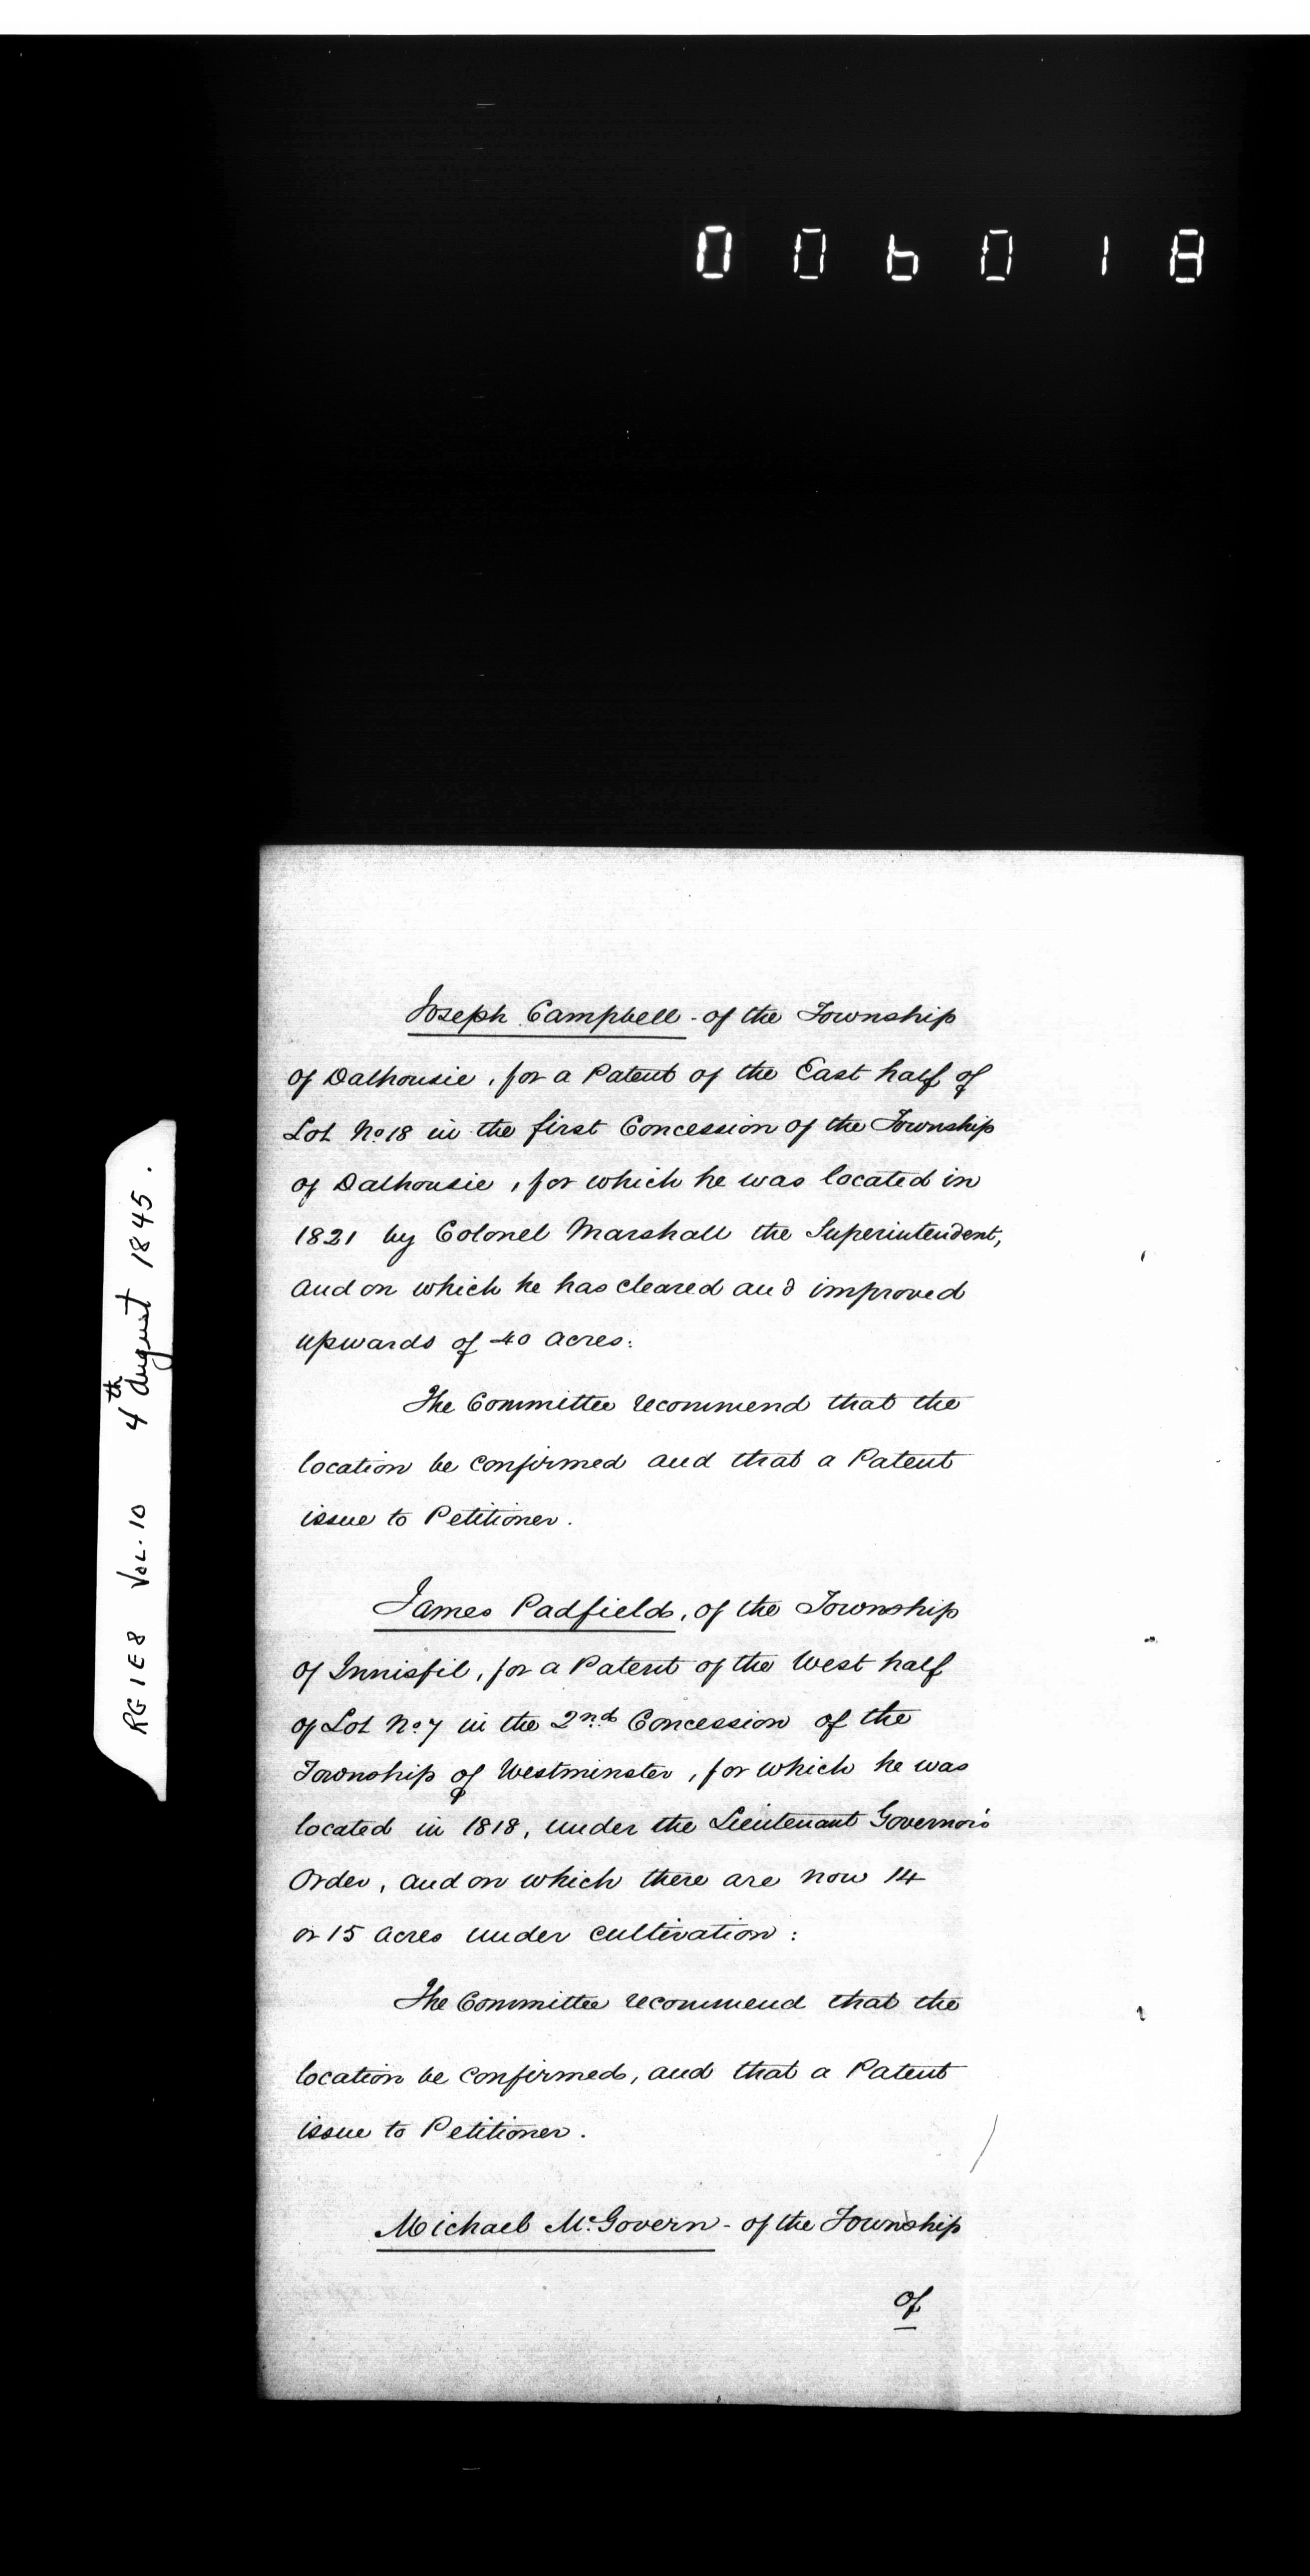 006018
RG 1 E 8 VOL. 10 4th August 1845.
Joseph Campbell - of the Township
of Dalhousie, for a Patent of the East half of
Lot No 18 in the first Concession of the Township
of Dalhousie, for which he was located in
1821 by Colonel Marshall the Superintendent,
and on which he has cleared and improved
upwards of 40 acres:
The Committee recommend that the
location be confirmed and that a Patent
issue to Petitioner.
James Padfield, of the Township
of Innisfil, for a Patent of the West half
of Lot No 7 in the 2nd Concession of the
Township of Westminster, for which he was
located in 1818, under the Lieutenant Governor's
Order, and on which there are now 14
or 15 acres under cultivation:
The Committee recommend that the
location be confirmed, and that a Patent
issue to Petitioner.
Michael McGovern - of the Township
of